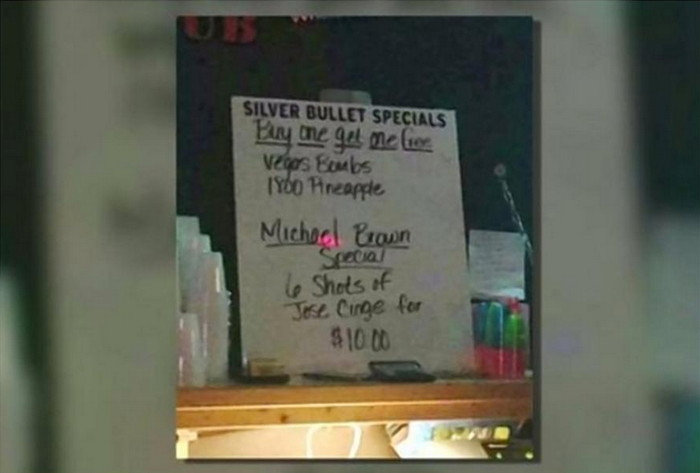 UB
SILVER BULLET SPECIALS
Buy one get one free
Vegas Bombs
1800 Pineapple
Michael Brown
Special
6 Shots of
Jose Cinge for
$10.00